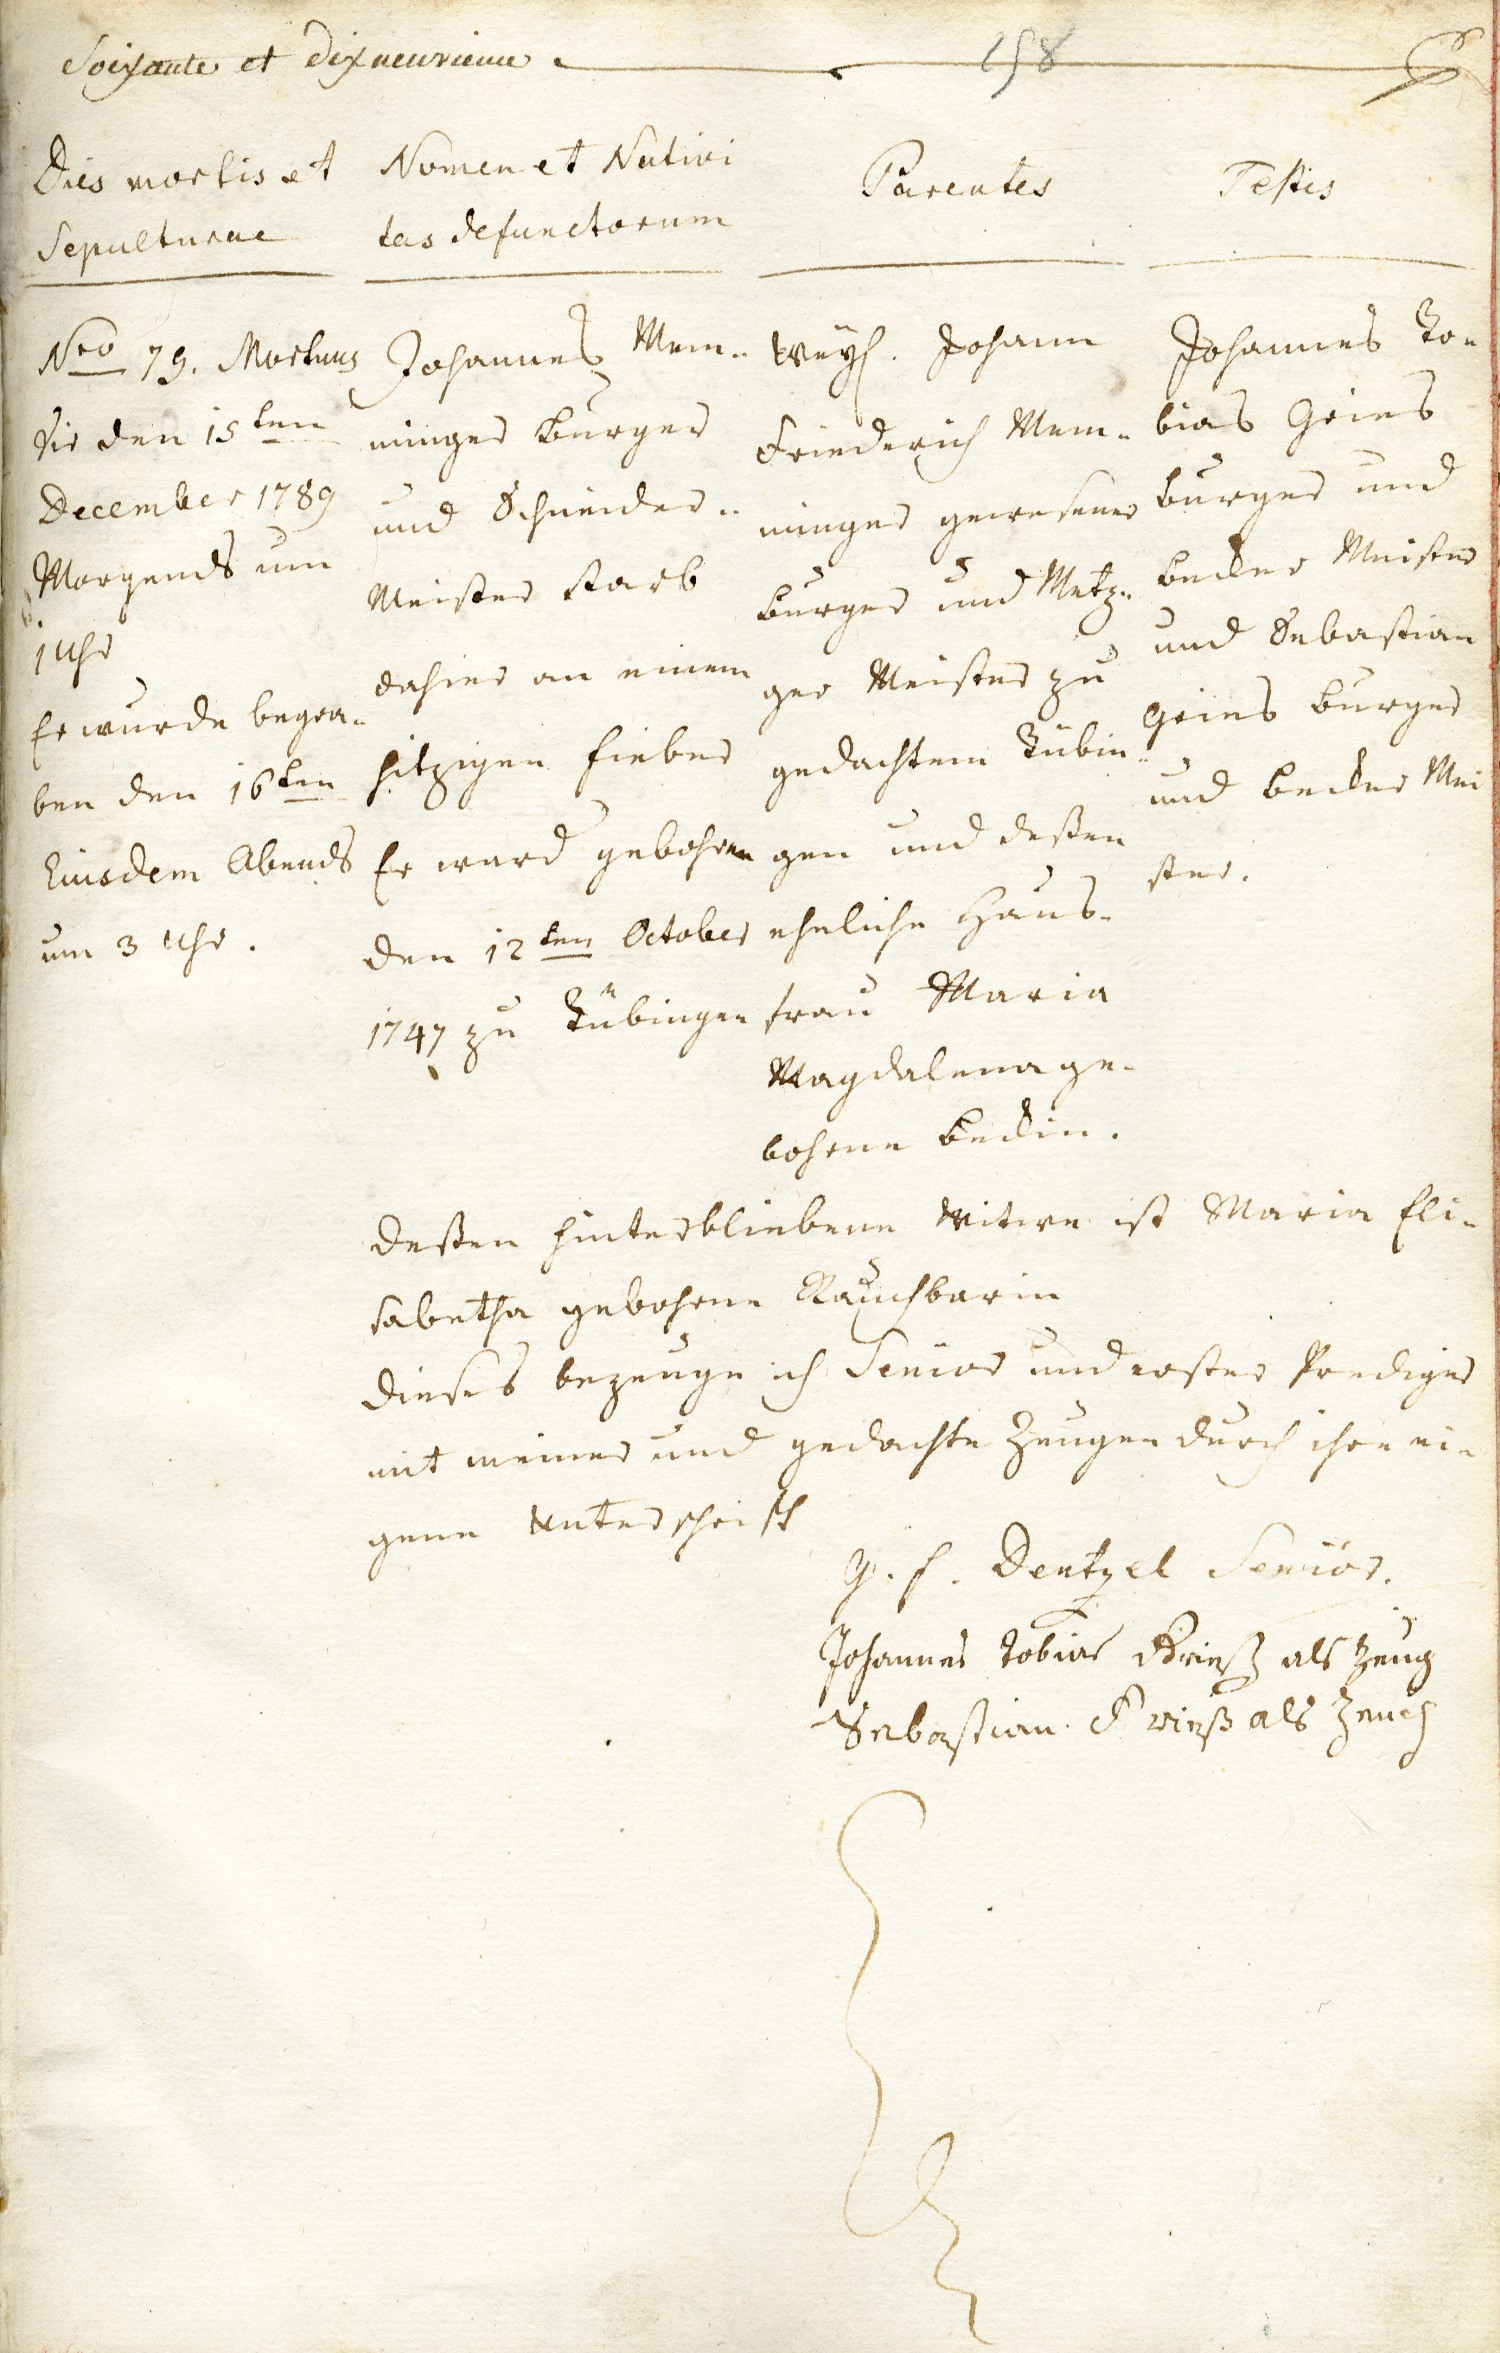 Soixante et dixneuvieme.
158
Dies mortis et
Sepulturae
Nro 79. Mortuus
die den 15ten
December 1789
Morgends um
1 Uhr
Er wurde begra-
ben den 16ten
Eiusdem Abends
um 3 Uhr.
Nomen et Nativi
tas defunctorum
Johannes Mem-
minger Burger
und Schneider-
Meister starb
dahier an einem
hitzigen Fieber
Er ward gebohren
den 12ten October
1747 zu Tübingen
Parentes
weyl. Johann
Friederich Mem-
minger gewesener
burger und Metz-
ger Meister zu
gedachtem Tübin-
gen und deßen
eheliche Haus-
frau Maria
Magdalena ge-
bohrne Beckin.
Testes
Johannes To-
bias Gries
burger und
becker Meister
und Sebastian
Gries burger
und becker Mei
ster.
deßen hinterbliebene Witwe ist Maria Eli-
sabetha gebohrne Rauchbarin
dieses bezeuge ich Senior und erster Prediger
mit meiner und gedachte Zeugen durch ihre ei-
gene Unterschrift
G. F. Dentzel Senior.
Johannes Tobias Krieß als Zeug
Sebastian Krieß als Zeuch